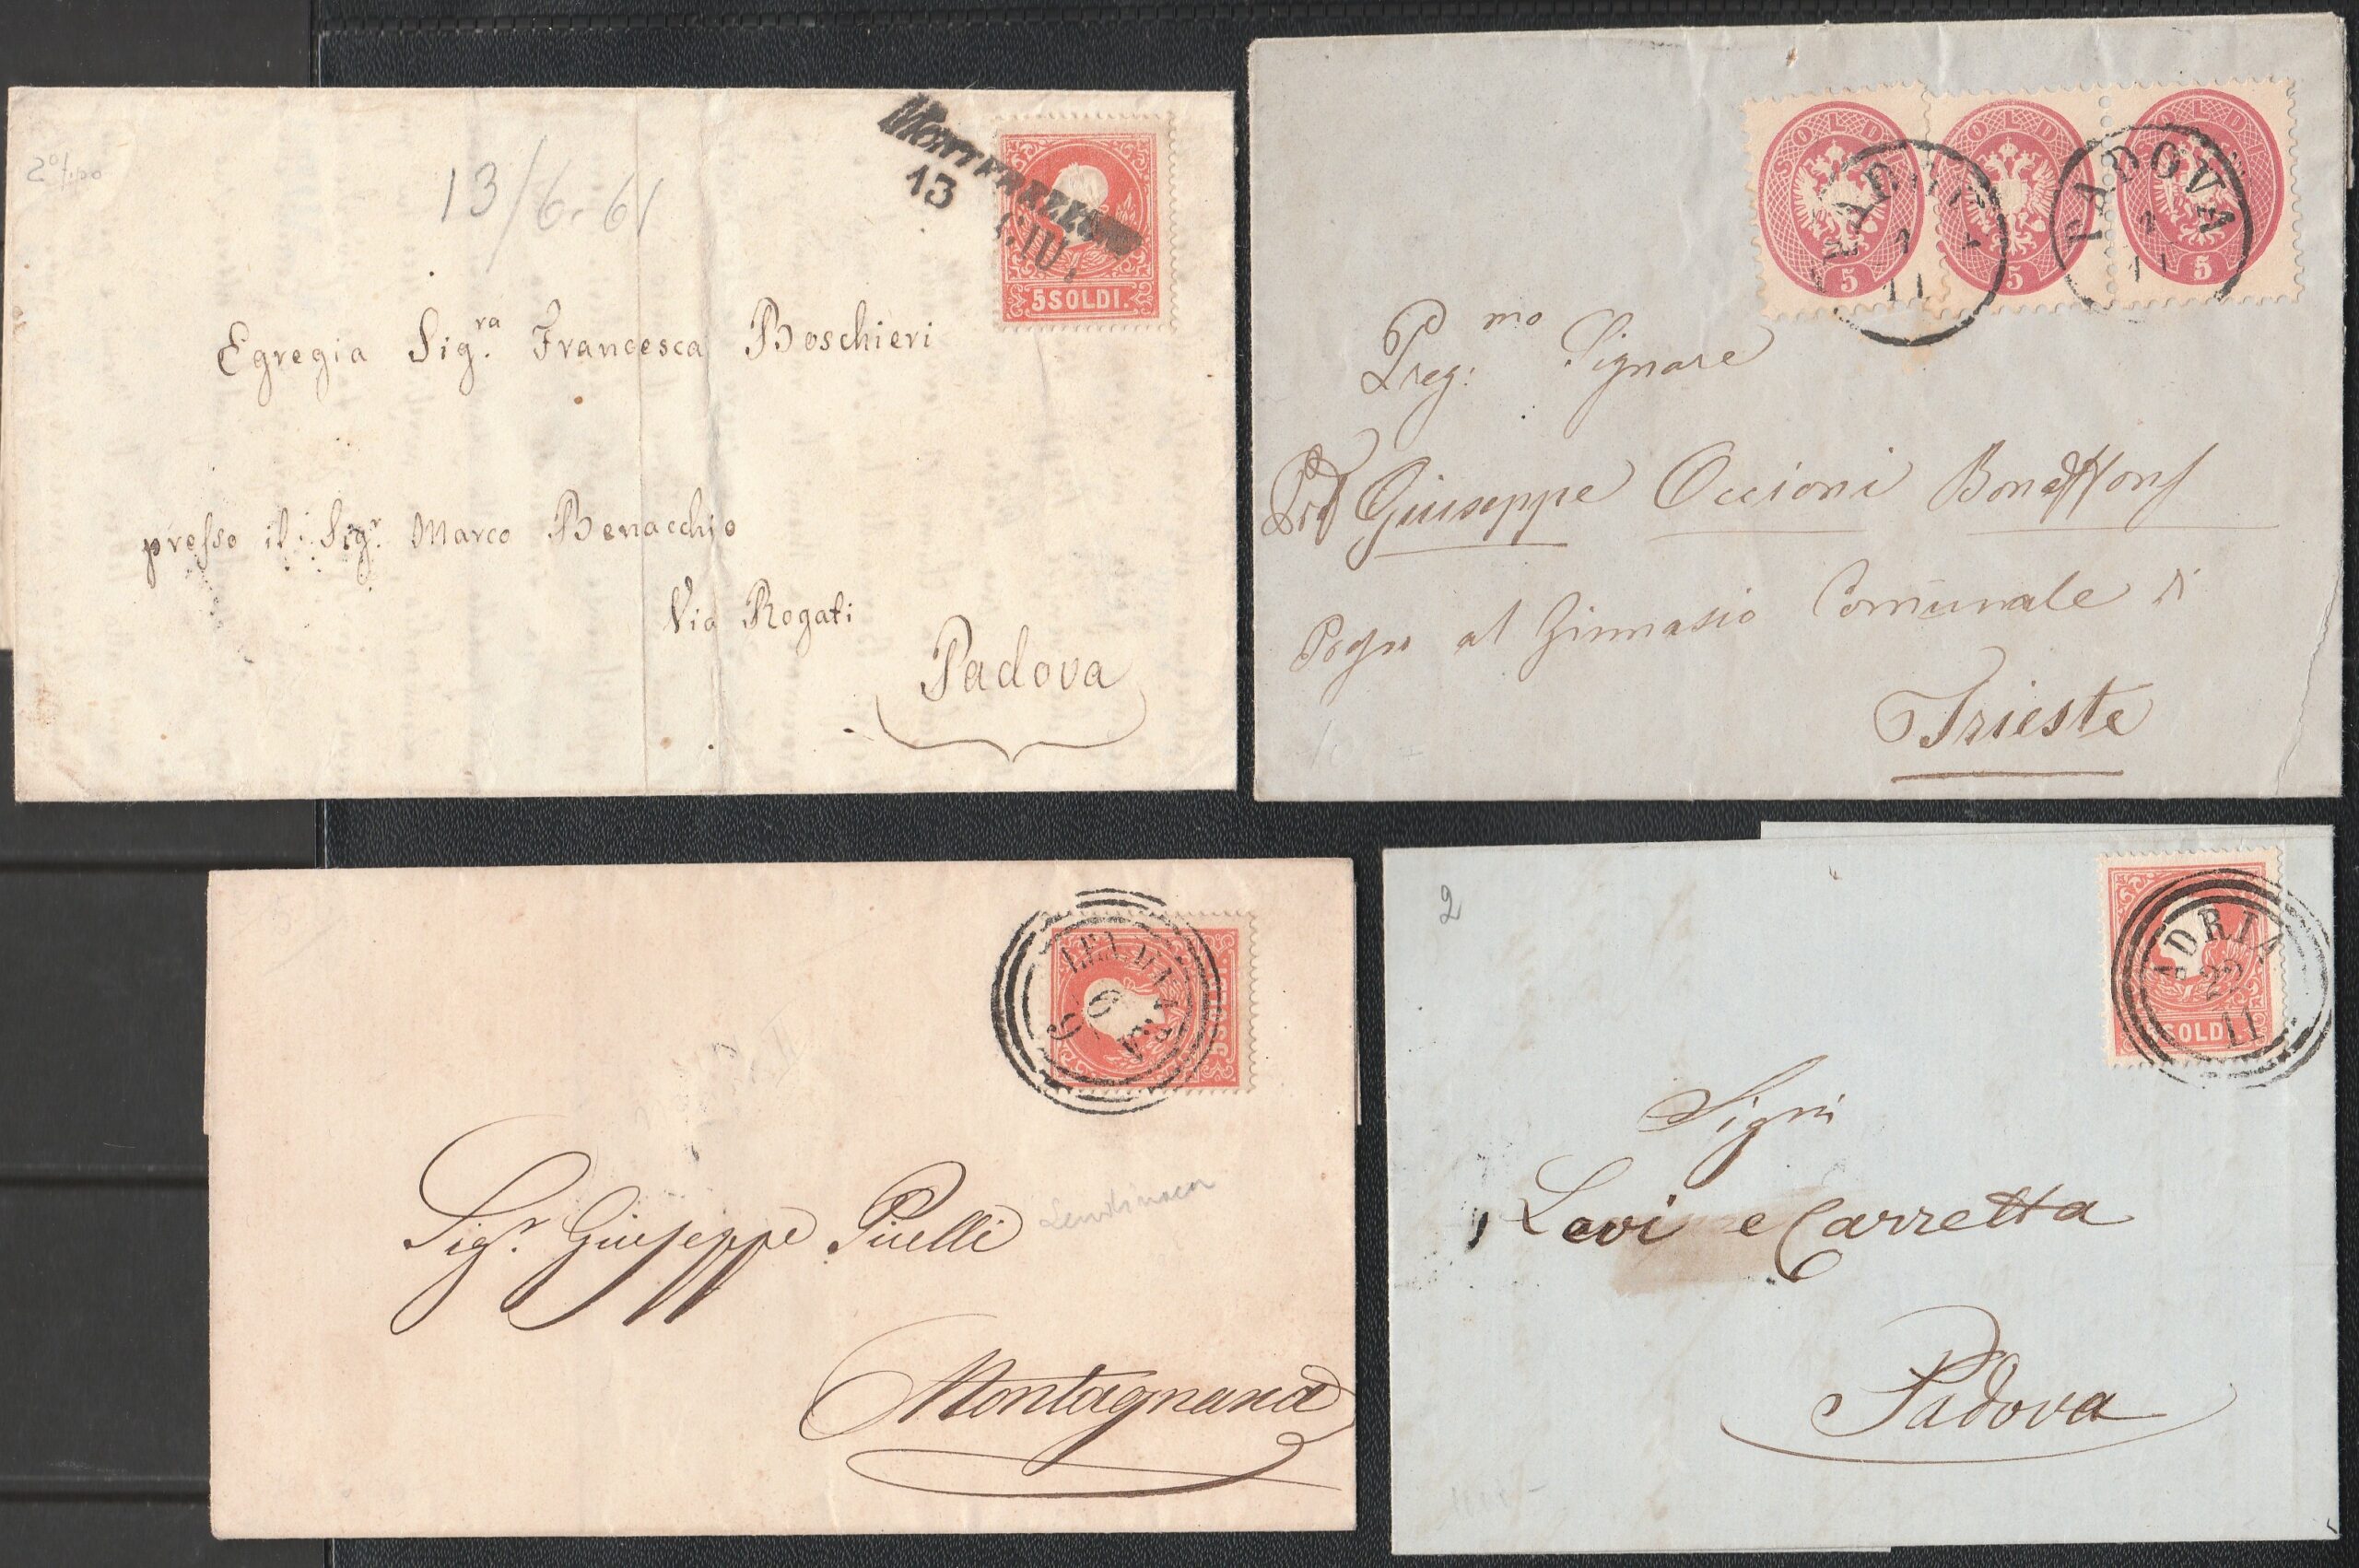 20/100
13/6.61
MONTEBELLUNA
13
GIU.
5 SOLDI.
Egregia Sig.ra Francesca Boschieri
presso il Sigr. Marco Benacchio
Via Rogati
Padova
SOLDI
5
SOLDI
5
SOLDI
5
PADOVA
1
11
PADOVA
1
11
Preg:mo Signore
Giuseppe Occioni Bonaffons
al Ginnasio Comunale di
Trieste
LENDINARA
6
9
SOLDI
Sigr. Giuseppe Puelli
Lendinara
Montagnana
2
ADRIA
22
11
SOLDI
Sigri
Levi e Carretta
Padova